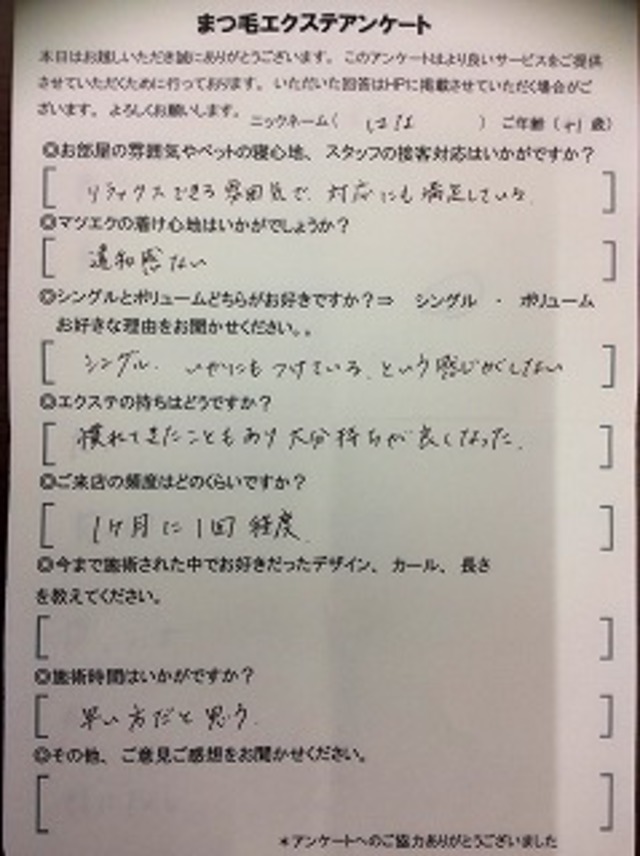 まつ毛エクステアンケート
本日はお越しいただき誠にありがとうございます。このアンケートはより良いサービスをご提供
させていただくために行っております。いただいた回答はHPに掲載させていただく場合がご
ざいます。よろしくお願いします。
ニックネーム( はは ) ご年齢(41歳)
◎お部屋の雰囲気やベットの寝心地、スタッフの接客対応はいかがですか?
[ リラックスできる雰囲気で、対応にも満足している。 ]
◎マツエクの着け心地はいかがでしょうか?
[ 違和感ない ]
◎シングルとボリュームどちらがお好きですか?⇒ シングル ・ ボリューム
お好きな理由をお聞かせください。。
[ シングル. いかにもつけている、という感じがしない ]
◎エクステの持ちはどうですか?
[ 慣れてきたこともあり大分持ちが良くなった。 ]
◎ご来店の頻度はどのくらいですか?
[ 1ヶ月に1回程度 ]
◎今まで施術された中でお好きだったデザイン、カール、長さ
を教えてください。
[ ]
◎施術時間はいかがですか?
[ 早い方だと思う. ]
◎その他、ご意見ご感想をお聞かせください。
[ ]
*アンケートへのご協力ありがとうございました